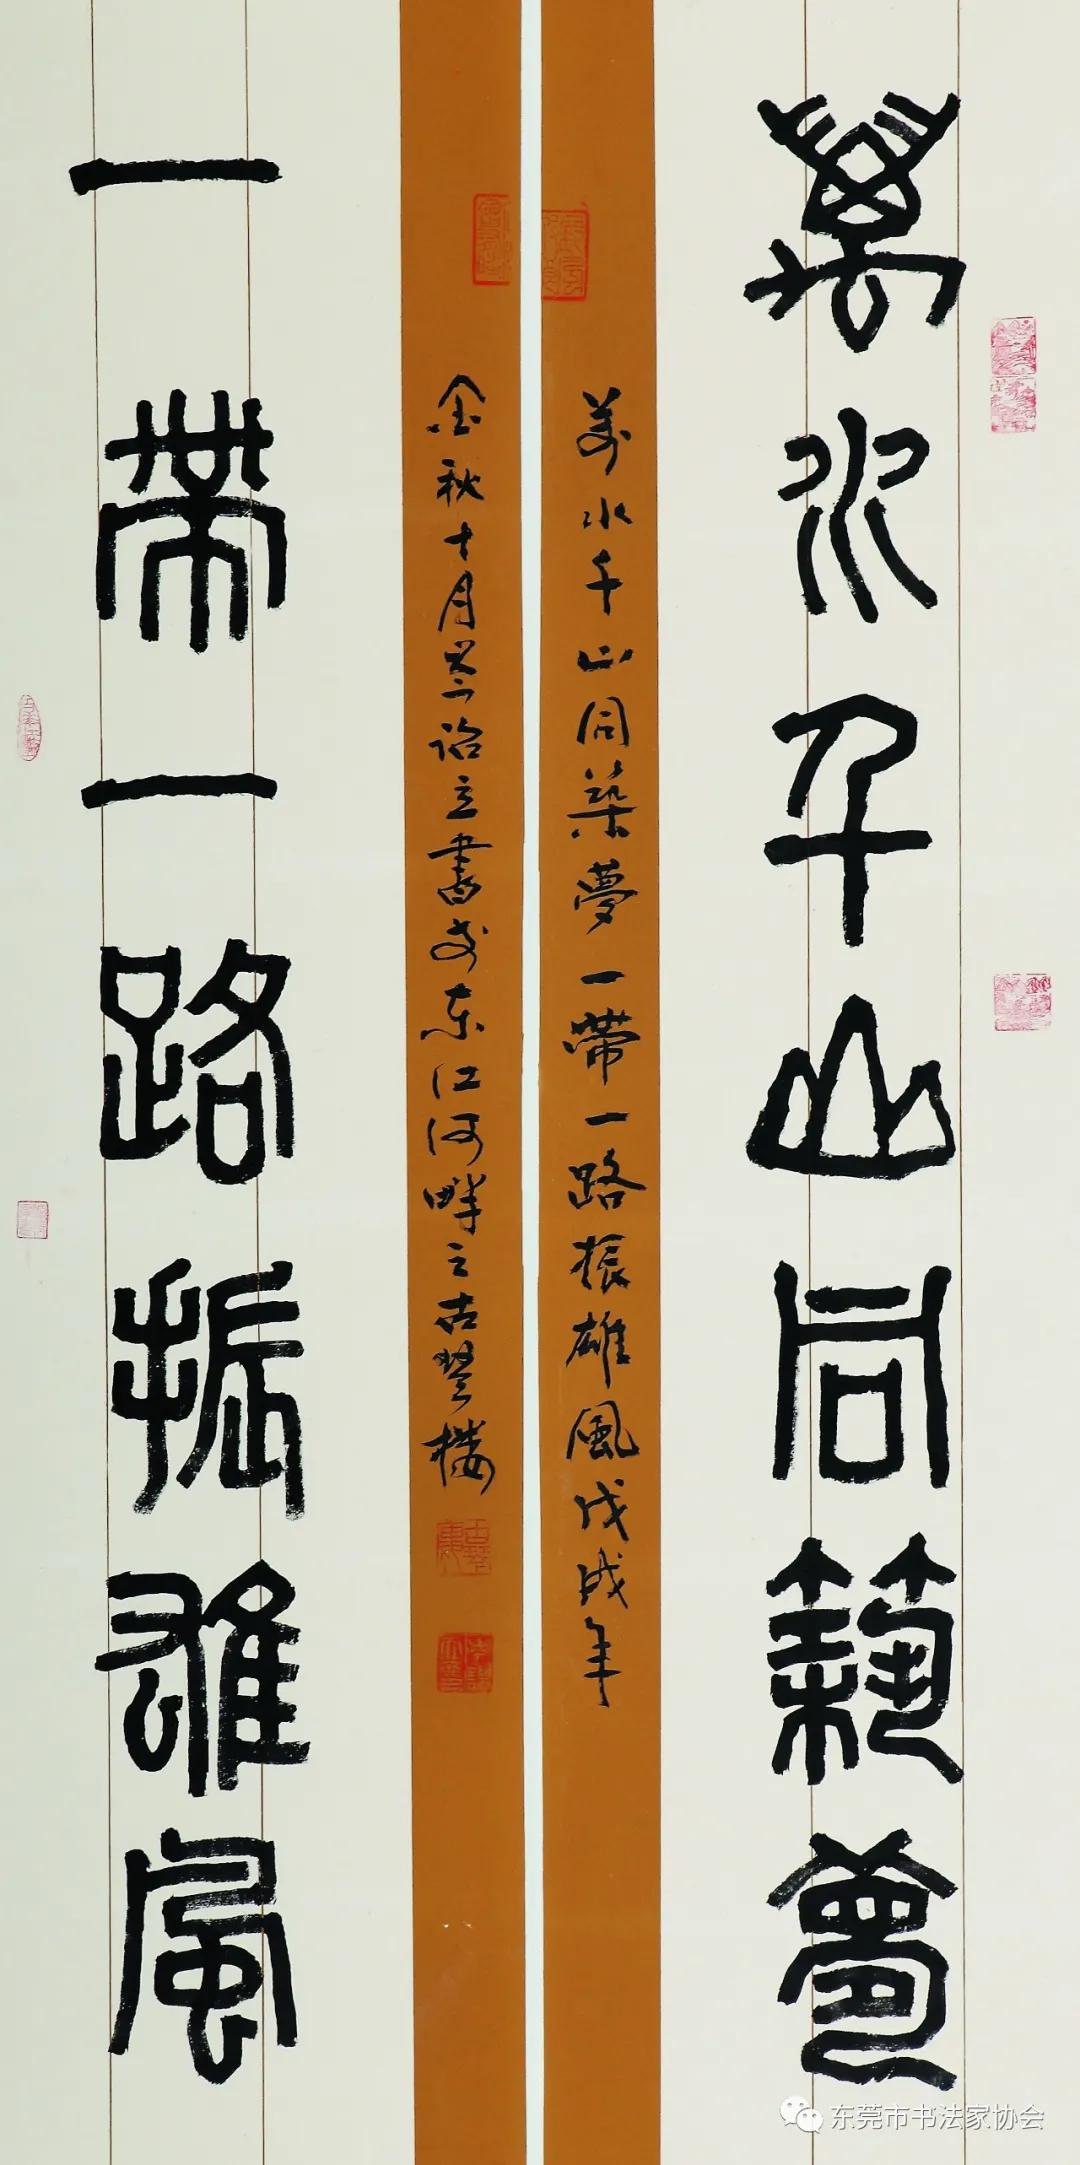 萬水千山同築夢
萬水千山同築夢一帶一路振雄風戊戌年
金秋十月詒立書於東江河畔之古琴樓
一帶一路振雄風
东莞市书法家协会